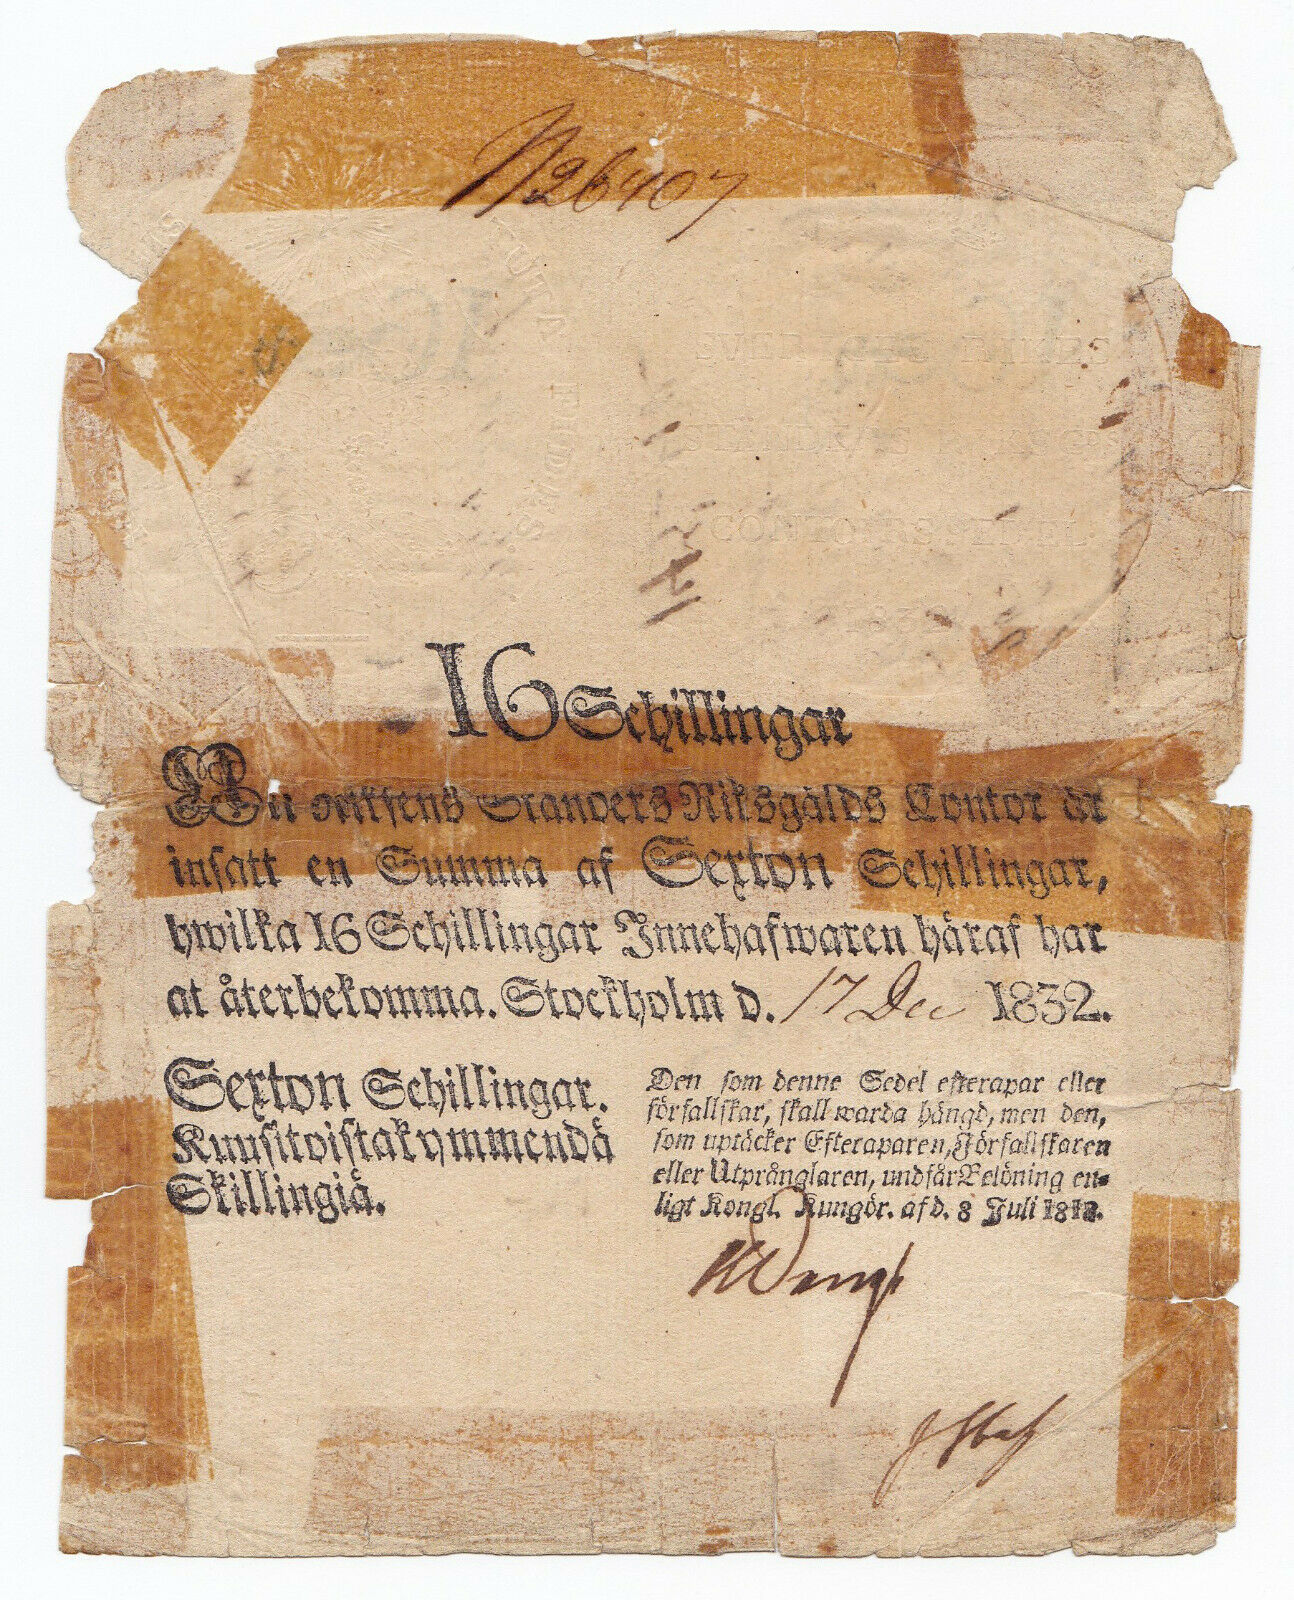 N 26407
SALUTE
FIDES.
SWERIGES RIKES
STÄNDERS
CONTOIRS SEDEL
1832
16 Schillingar
Uti Riksens Ständers Riksgälds Contor är
insatt en Summa af Sexton Schillingar,
hwilka 16 Schillingar Innehafwaren häraf har
at återbekomma. Stockholm d. 17 Dec 1832.
Sexton Schillingar.
Kuusitoistakymmendä
Skillingiä.
Den som denne Sedel efterapar eller
förfallskar, skall warda hängd, men den,
som uptäcker Efteraparen, Förfallskaren
eller Utprånglaren, undfår Belöning en-
ligt Kongl. Kungör. af d. 8 Juli 1812.